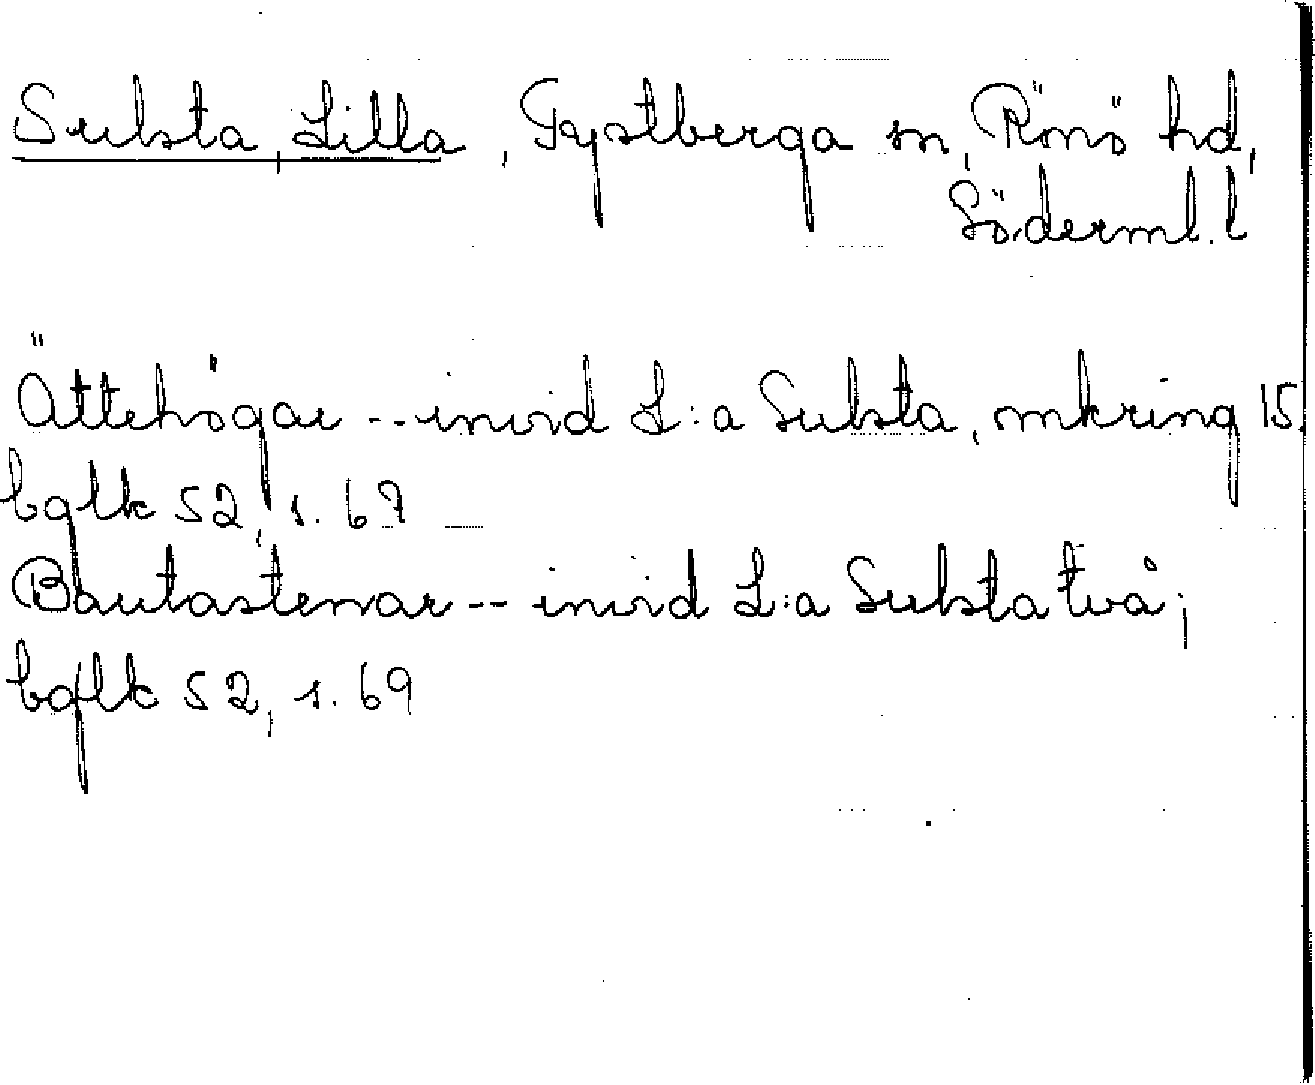 Substa, Lilla, Tystberga sn, Rönö hd,
Söderml. l
Ättehögar -- invid L:a Substa, omkring 15.
bglk 52, s. 67
Bautastenar -- invid L:a Substa två;
bglk 52, s. 69